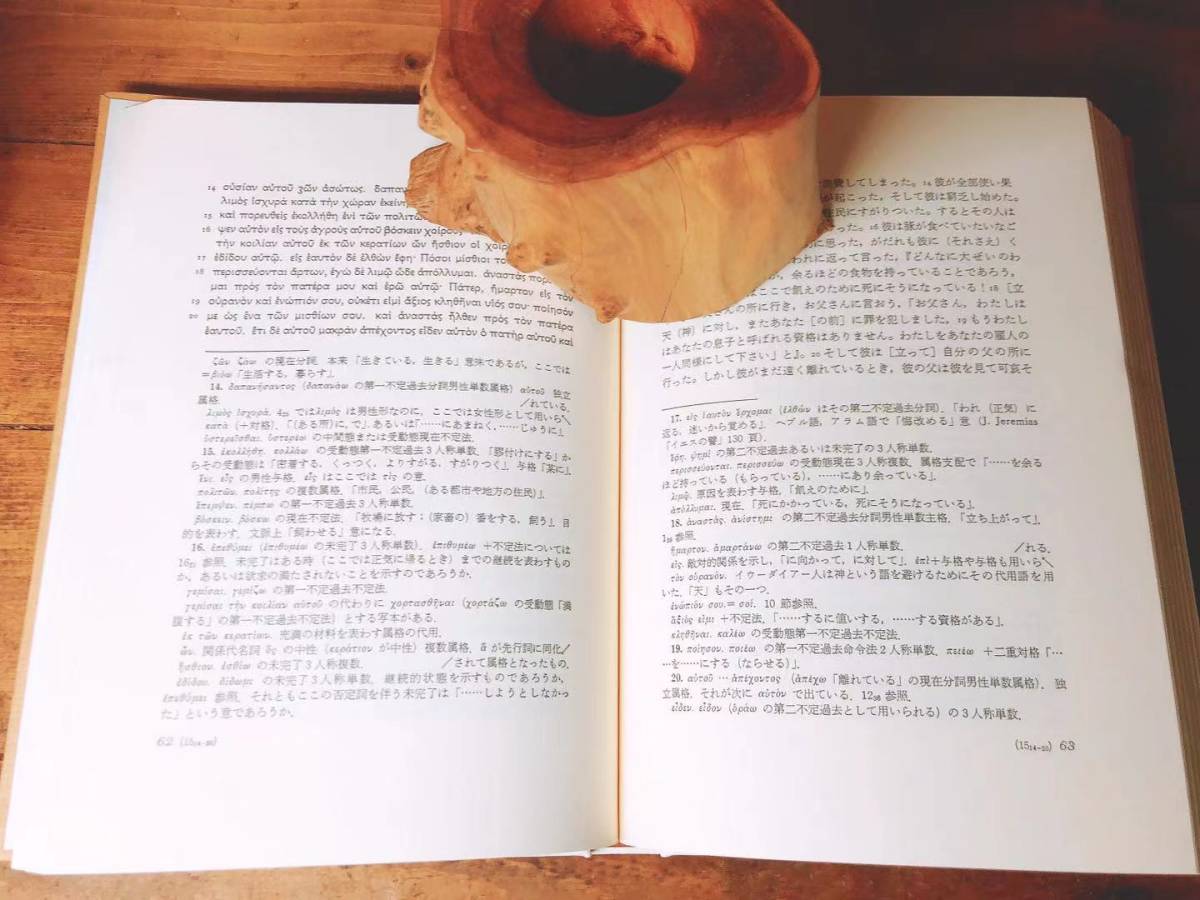 14 οὐσίαν αὐτοῦ ζῶν ἀσώτως. δαπαν
λιμὸς ἰσχυρὰ κατὰ τὴν χώραν ἐκείνη
15 καὶ πορευθεὶς ἐκολλήθη ἑνὶ τῶν πολιτῶ
ψεν αὐτὸν εἰς τοὺς ἀγροὺς αὐτοῦ βόσκειν χοίρου
16 τὴν κοιλίαν αὐτοῦ ἐκ τῶν κερατίων ὧν ἤσθιον οἱ χοῖρ
17 ἐδίδου αὐτῷ. εἰς ἑαυτὸν δὲ ἐλθὼν ἔφη· Πόσοι μίσθιοι το
18 περισσεύονται ἄρτων, ἐγὼ δὲ λιμῷ ὧδε ἀπόλλυμαι. ἀναστὰς πορ
μαι πρὸς τὸν πατέρα μου καὶ ἐρῶ αὐτῷ· Πάτερ, ἥμαρτον εἰς τὸν
19 οὐρανὸν καὶ ἐνώπιόν σου, οὐκέτι εἰμὶ ἄξιος κληθῆναι υἱός σου· ποίησόν
20 με ὡς ἕνα τῶν μισθίων σου. καὶ ἀναστὰς ἦλθεν πρὸς τὸν πατέρα
ἑαυτοῦ. ἔτι δὲ αὐτοῦ μακρὰν ἀπέχοντος εἶδεν αὐτὸν ὁ πατὴρ αὐτοῦ καὶ
ζῶν ζάω の現在分詞. 本来「生きている, 生きる」意味であるが, ここでは
=βιόω「生活する, 暮らす」.
14. δαπανήσαντος (δαπανάω の第一不定過去分詞男性単数属格) αὐτοῦ 独立
属格. /れている.
λιμὸς ἰσχυρά. 4₂₅ ではλιμός は男性形なのに, ここでは女性形として用いら\
κατὰ (+対格).「(ある所)に, で」. あるいは「……にあまねく, ……じゅうに」.
ὑστερεῖσθαι. ὑστερέω の中間態または受動態現在不定法.
15. ἐκολλήθη. κολλάω の受動態第一不定過去3人称単数.「膠付けにする」か
らその受動態は「密着する, くっつく, よりすがる, すがりつく」. 与格「某に」
ἑνί. εἷς の男性与格. εἷς はここでは τὶς の意.
πολιτῶν. πολίτης の複数属格.「市民, 公民, (ある都市や地方の住民)」.
ἔπεμψεν. πέμπω の第一不定過去3人称単数.
βόσκειν. βόσκω の現在不定法.「牧場に放す; (家畜の) 番をする, 飼う」. 目
的を表わす. 文脈上「飼わせる」意になる.
16. ἐπεθύμει (ἐπιθυμέω の未完了3人称単数). ἐπιθυμέω +不定法については
16₂₁ 参照. 未完了はある時 (ここでは正気に帰るとき) までの継続を表わすもの
か, あるいは欲求の満たされないことを示すのであろうか.
γεμίσαι. γεμίζω の第一不定過去不定法.
γεμίσαι τὴν κοιλίαν αὐτοῦ の代わりに χορτασθῆναι (χορτάζω の受動態「満
腹する」の第一不定過去不定法) とする写本がある.
ἐκ τῶν κερατίων. 充満の材料を表わす属格の代用.
ὧν. 関係代名詞 ὅς の中性 (κεράτιον が中性) 複数属格. ἅ が先行詞に同化/
ἤσθιον. ἐσθίω の未完了3人称複数. /されて属格となったもの.
ἐδίδου. δίδωμι の未完了3人称単数. 継続的状態を示すものであろうか.
ἐπεθύμει 参照. それともここの否定詞を伴う未完了は「……しようとしなかっ
た」という意であろうか.
62 (15₁₄₋₂₀)
消費してしまった。 14 彼が全部使い果
が起こった。そして彼は窮乏し始めた。
住民にすがりついた。するとその人は
った。 16 彼は豚が食べていたいなご
に思った, がだれも彼に (それさえ) く
われに返って言った。『どんなに大ぜいのわ
が, 余るほどの食物を持っていることであろう。
はここで飢えのために死にそうになっている! 18 [立
さんの所に行き, お父さんに言おう,「お父さん, わたしは
天 (神) に対し, またあなた [の前] に罪を犯しました, 19 もうわたし
はあなたの息子と呼ばれる資格はありません。わたしをあなたの雇人の
一人同様にして下さい」と』。 20 そして彼は [立って] 自分の父の所に
行った。しかし彼がまだ遠く離れているとき, 彼の父は彼を見て可哀そ
17. εἰς ἑαυτὸν ἔρχομαι (ἐλθών はその第二不定過去分詞).「われ (正気) に
返る, 迷いから覚める」. ヘブル語, アラム語で「悔改める」意 (J. Jeremias
『イエスの譬』130 頁).
ἔφη. φημί の第二不定過去あるいは未完了の3人称単数.
περισσεύονται. περισσεύω の受動態現在3人称複数. 属格支配で「……を余る
ほど持っている (もらっている), ……にあり余っている」.
λιμῷ. 原因を表わす与格.「飢えのために」.
ἀπόλλυμαι. 現在.「死にかかっている, 死にそうになっている」.
18. ἀναστάς. ἀνίστημι の第二不定過去分詞男性単数主格.「立ち上がって」.
1₃₉ 参照.
ἥμαρτον. ἁμαρτάνω の第二不定過去1人称単数. /れる.
εἰς. 敵対的関係を示し,「に向かって, に対して」. ἐπί+与格や与格も用いら\
τὸν οὐρανόν. イウーダイアー人は神という語を避けるためにその代用語を用
いた.「天」もその一つ.
ἐνώπιόν σου.=σοί. 10 節参照.
ἄξιός εἰμι +不定法.「……するに値いする, ……する資格がある」.
κληθῆναι. καλέω の受動態第一不定過去不定法.
19. ποίησον. ποιέω の第一不定過去命令法2人称単数. ποιέω +二重対格「…
…を……にする (ならせる)」.
20. αὐτοῦ … ἀπέχοντος (ἀπέχω「離れている」の現在分詞男性単数属格). 独
立属格. それが次に αὐτόν で出ている. 12₃₆ 参照.
εἶδεν. εἶδον (ὁράω の第二不定過去として用いられる) の3人称単数.
(15₁₄₋₂₀) 63